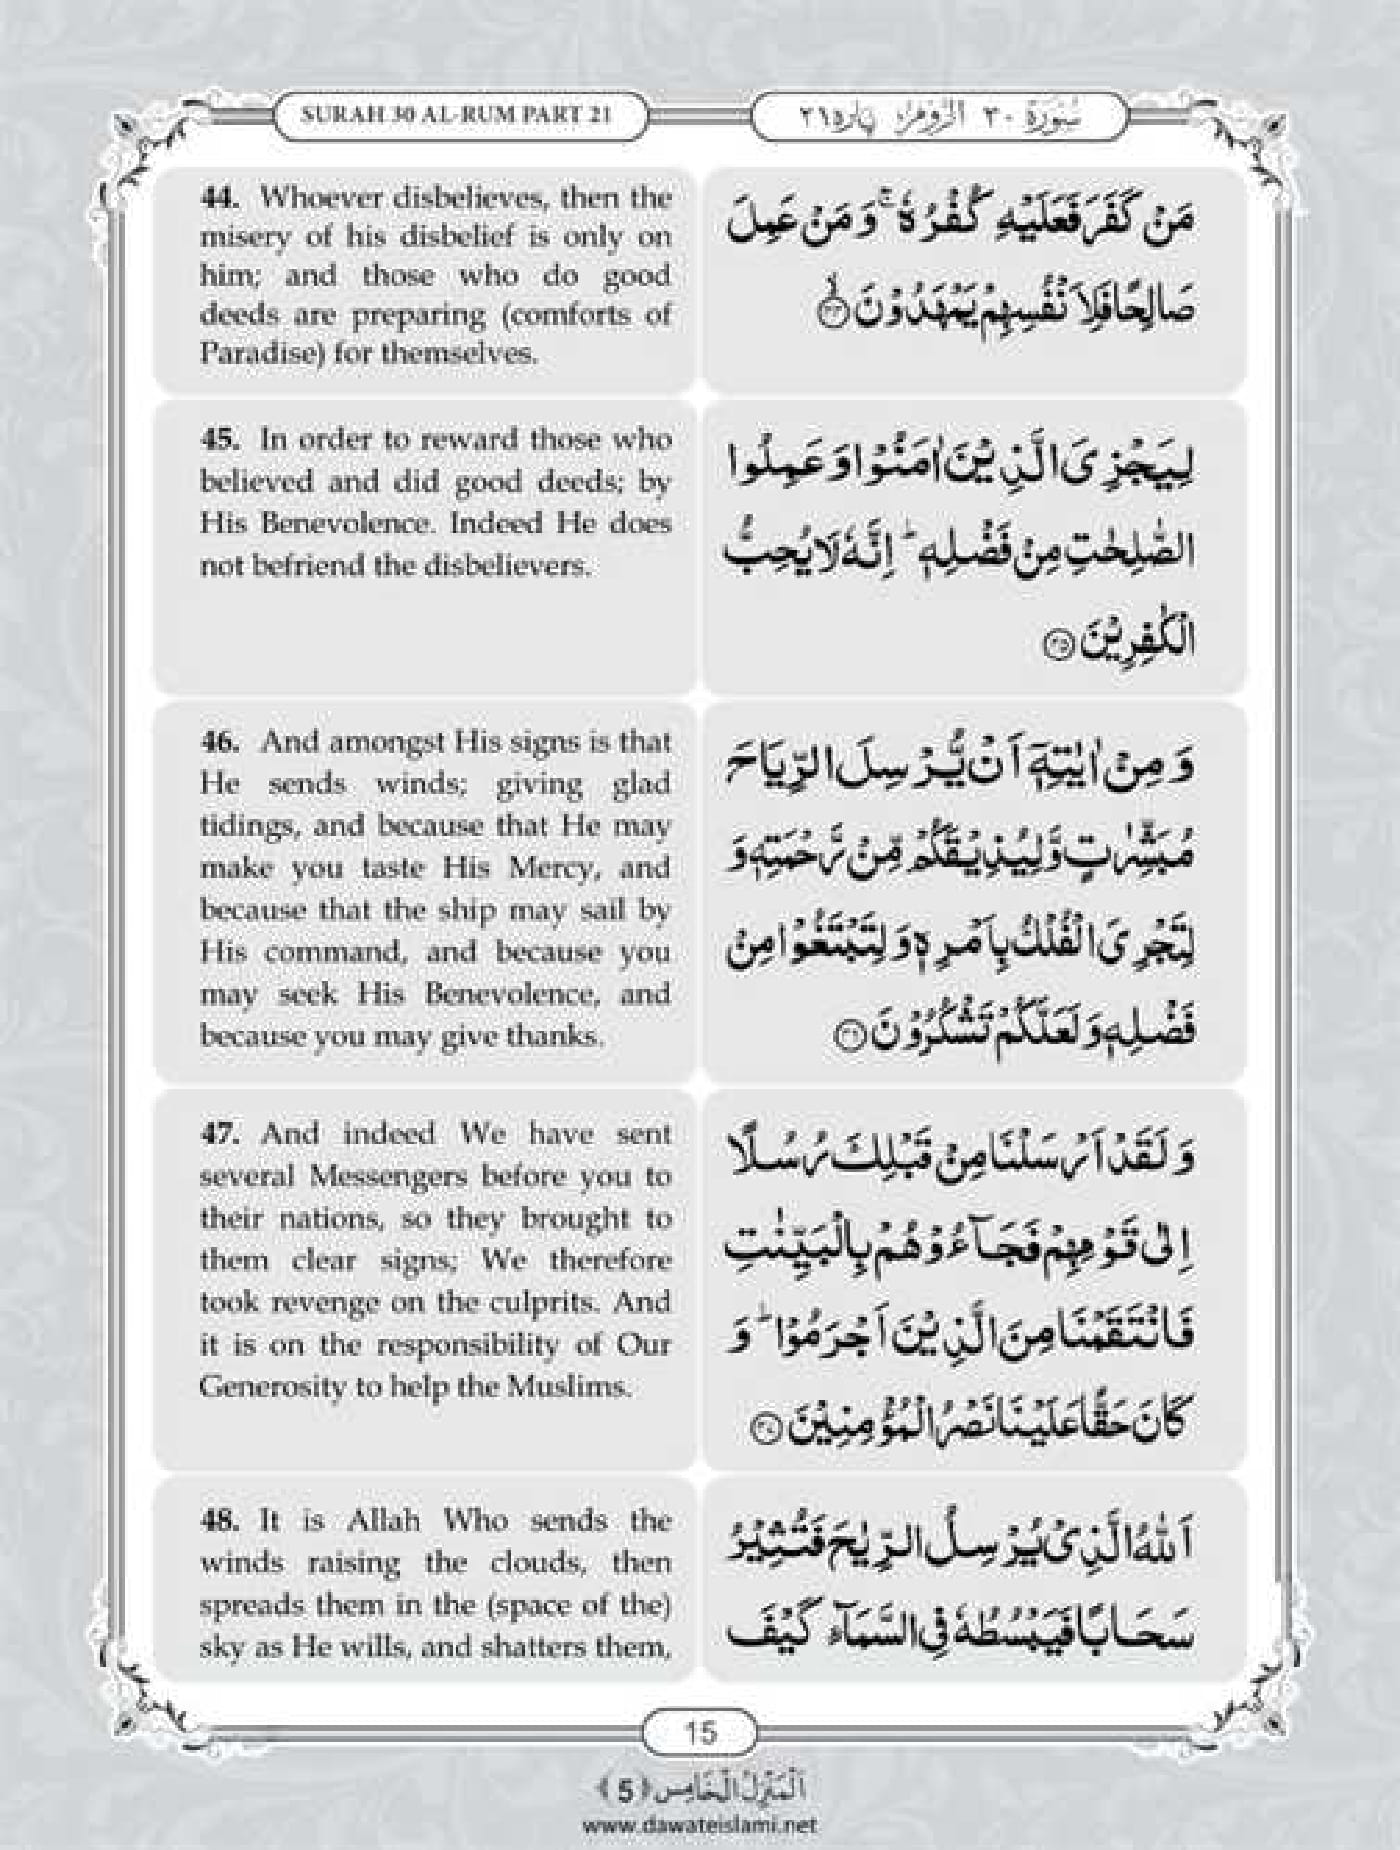 SURAH 30 AL-RUM PART 21
سُوْرَة ٣٠ الرُّوْمِ پاره٢١
44. Whoever disbelieves, then the
misery of his disbelief is only on
him; and those who do good
deeds are preparing (comforts of
Paradise) for themselves.
مَنْ كَفَرَ فَعَلَيْهِ كُفْرُهٗ ۚ وَ مَنْ عَمِلَ
صَالِحًا فَلِاَ نْفُسِهِمْ يَمْهَدُوْنَ ﴿۴۴﴾
45. In order to reward those who
believed and did good deeds; by
His Benevolence. Indeed He does
not befriend the disbelievers.
لِيَجْزِیَ الَّذِيْنَ اٰمَنُوْا وَ عَمِلُوا
الصّٰلِحٰتِ مِنْ فَضْلِهٖ ؕ اِنَّهٗ لَا يُحِبُّ
الْكٰفِرِيْنَ ﴿۴۵﴾
46. And amongst His signs is that
He sends winds; giving glad
tidings, and because that He may
make you taste His Mercy, and
because that the ship may sail by
His command, and because you
may seek His Benevolence, and
because you may give thanks.
وَ مِنْ اٰيٰتِهٖۤ اَنْ يُّرْسِلَ الرِّيَاحَ
مُبَشِّرٰتٍ وَّ لِيُذِيْقَكُمْ مِّنْ رَّحْمَتِهٖ وَ
لِتَجْرِیَ الْفُلْكُ بِاَمْرِهٖ وَ لِتَبْتَغُوْا مِنْ
فَضْلِهٖ وَ لَعَلَّكُمْ تَشْكُرُوْنَ ﴿۴۶﴾
47. And indeed We have sent
several Messengers before you to
their nations, so they brought to
them clear signs; We therefore
took revenge on the culprits. And
it is on the responsibility of Our
Generosity to help the Muslims.
وَ لَقَدْ اَرْسَلْنَا مِنْ قَبْلِكَ رُسُلًا
اِلٰی قَوْمِهِمْ فَجَآءُوْهُمْ بِالْبَيِّنٰتِ
فَانْتَقَمْنَا مِنَ الَّذِيْنَ اَجْرَمُوْا ؕ وَ
كَانَ حَقًّا عَلَيْنَا نَصْرُ الْمُؤْمِنِيْنَ ﴿۴۷﴾
48. It is Allah Who sends the
winds raising the clouds, then
spreads them in the (space of the)
sky as He wills, and shatters them,
اَللّٰهُ الَّذِیْ يُرْسِلُ الرِّيٰحَ فَتُثِيْرُ
سَحَابًا فَيَبْسُطُهٗ فِی السَّمَآءِ كَيْفَ
15
اَلْمَنْزِلُ الْخَامِس ﴿5﴾
www.dawateislami.net